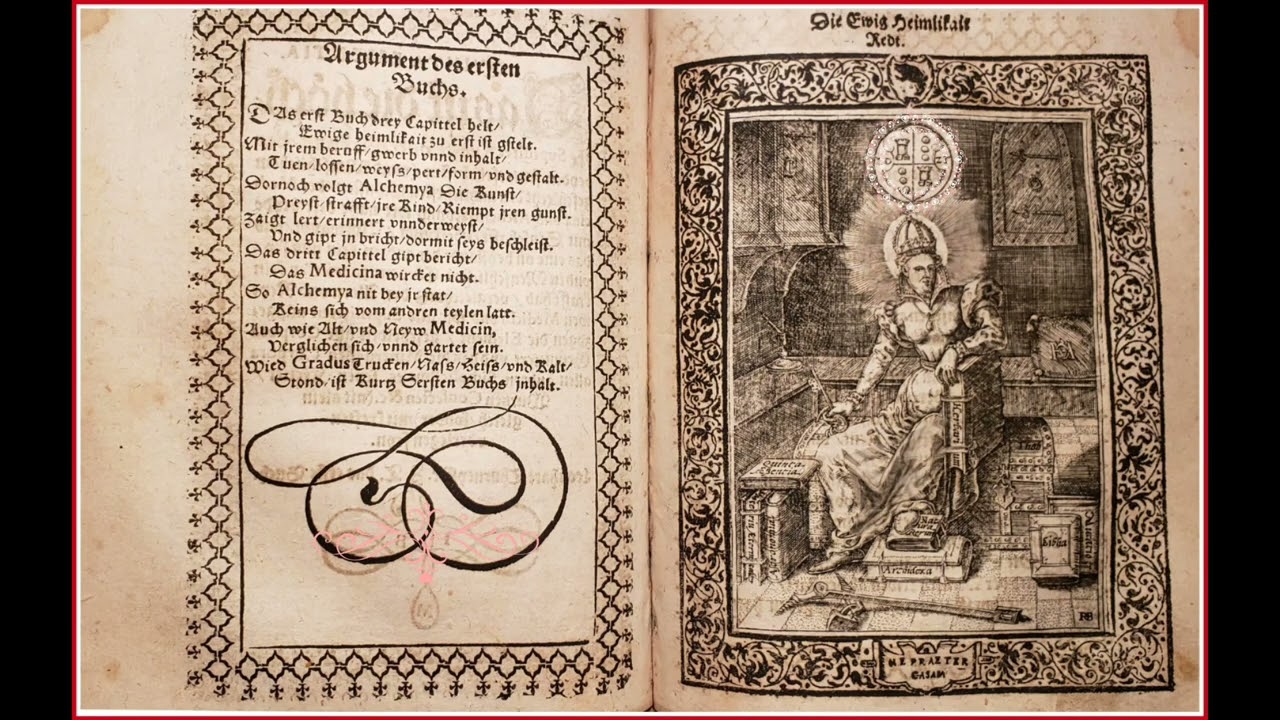 Argument des ersten
Buchs.
DAs erst Buch drey Capittel helt/
Ewige heimlikait zu erst ist gstelt.
Mit jrem beruff/gwerb vnnd inhalt/
Tuen/lossen/weyss/pert/form/vnd gestalt.
Dornoch volgt Alchemya Die Kunst/
Preyst/strafft/jre Kind/Riempt jren gunst.
Zaigt lert/erinnert vnnderweyst/
Vnd gipt jn bricht/dormit seys beschleist.
Das dritt Capittel gipt bericht/
Das Medicina wircket nicht.
So Alchemya nit bey jr stat/
Keins sich vom andren teylen latt.
Auch wie Alt/vnd Neyw Medicin,
Verglichen sich/vnnd gartet sein.
Wied Gradus Trucken/Nass/Heiss/vnd Kalt/
Stond/ist Kurtz Sersten Buchs jnhalt.
M
Die Ewig Heimlikait
Redt.
Quinta
Essencia
Biblia
Archidoxa
NE PRAETER
CASAM